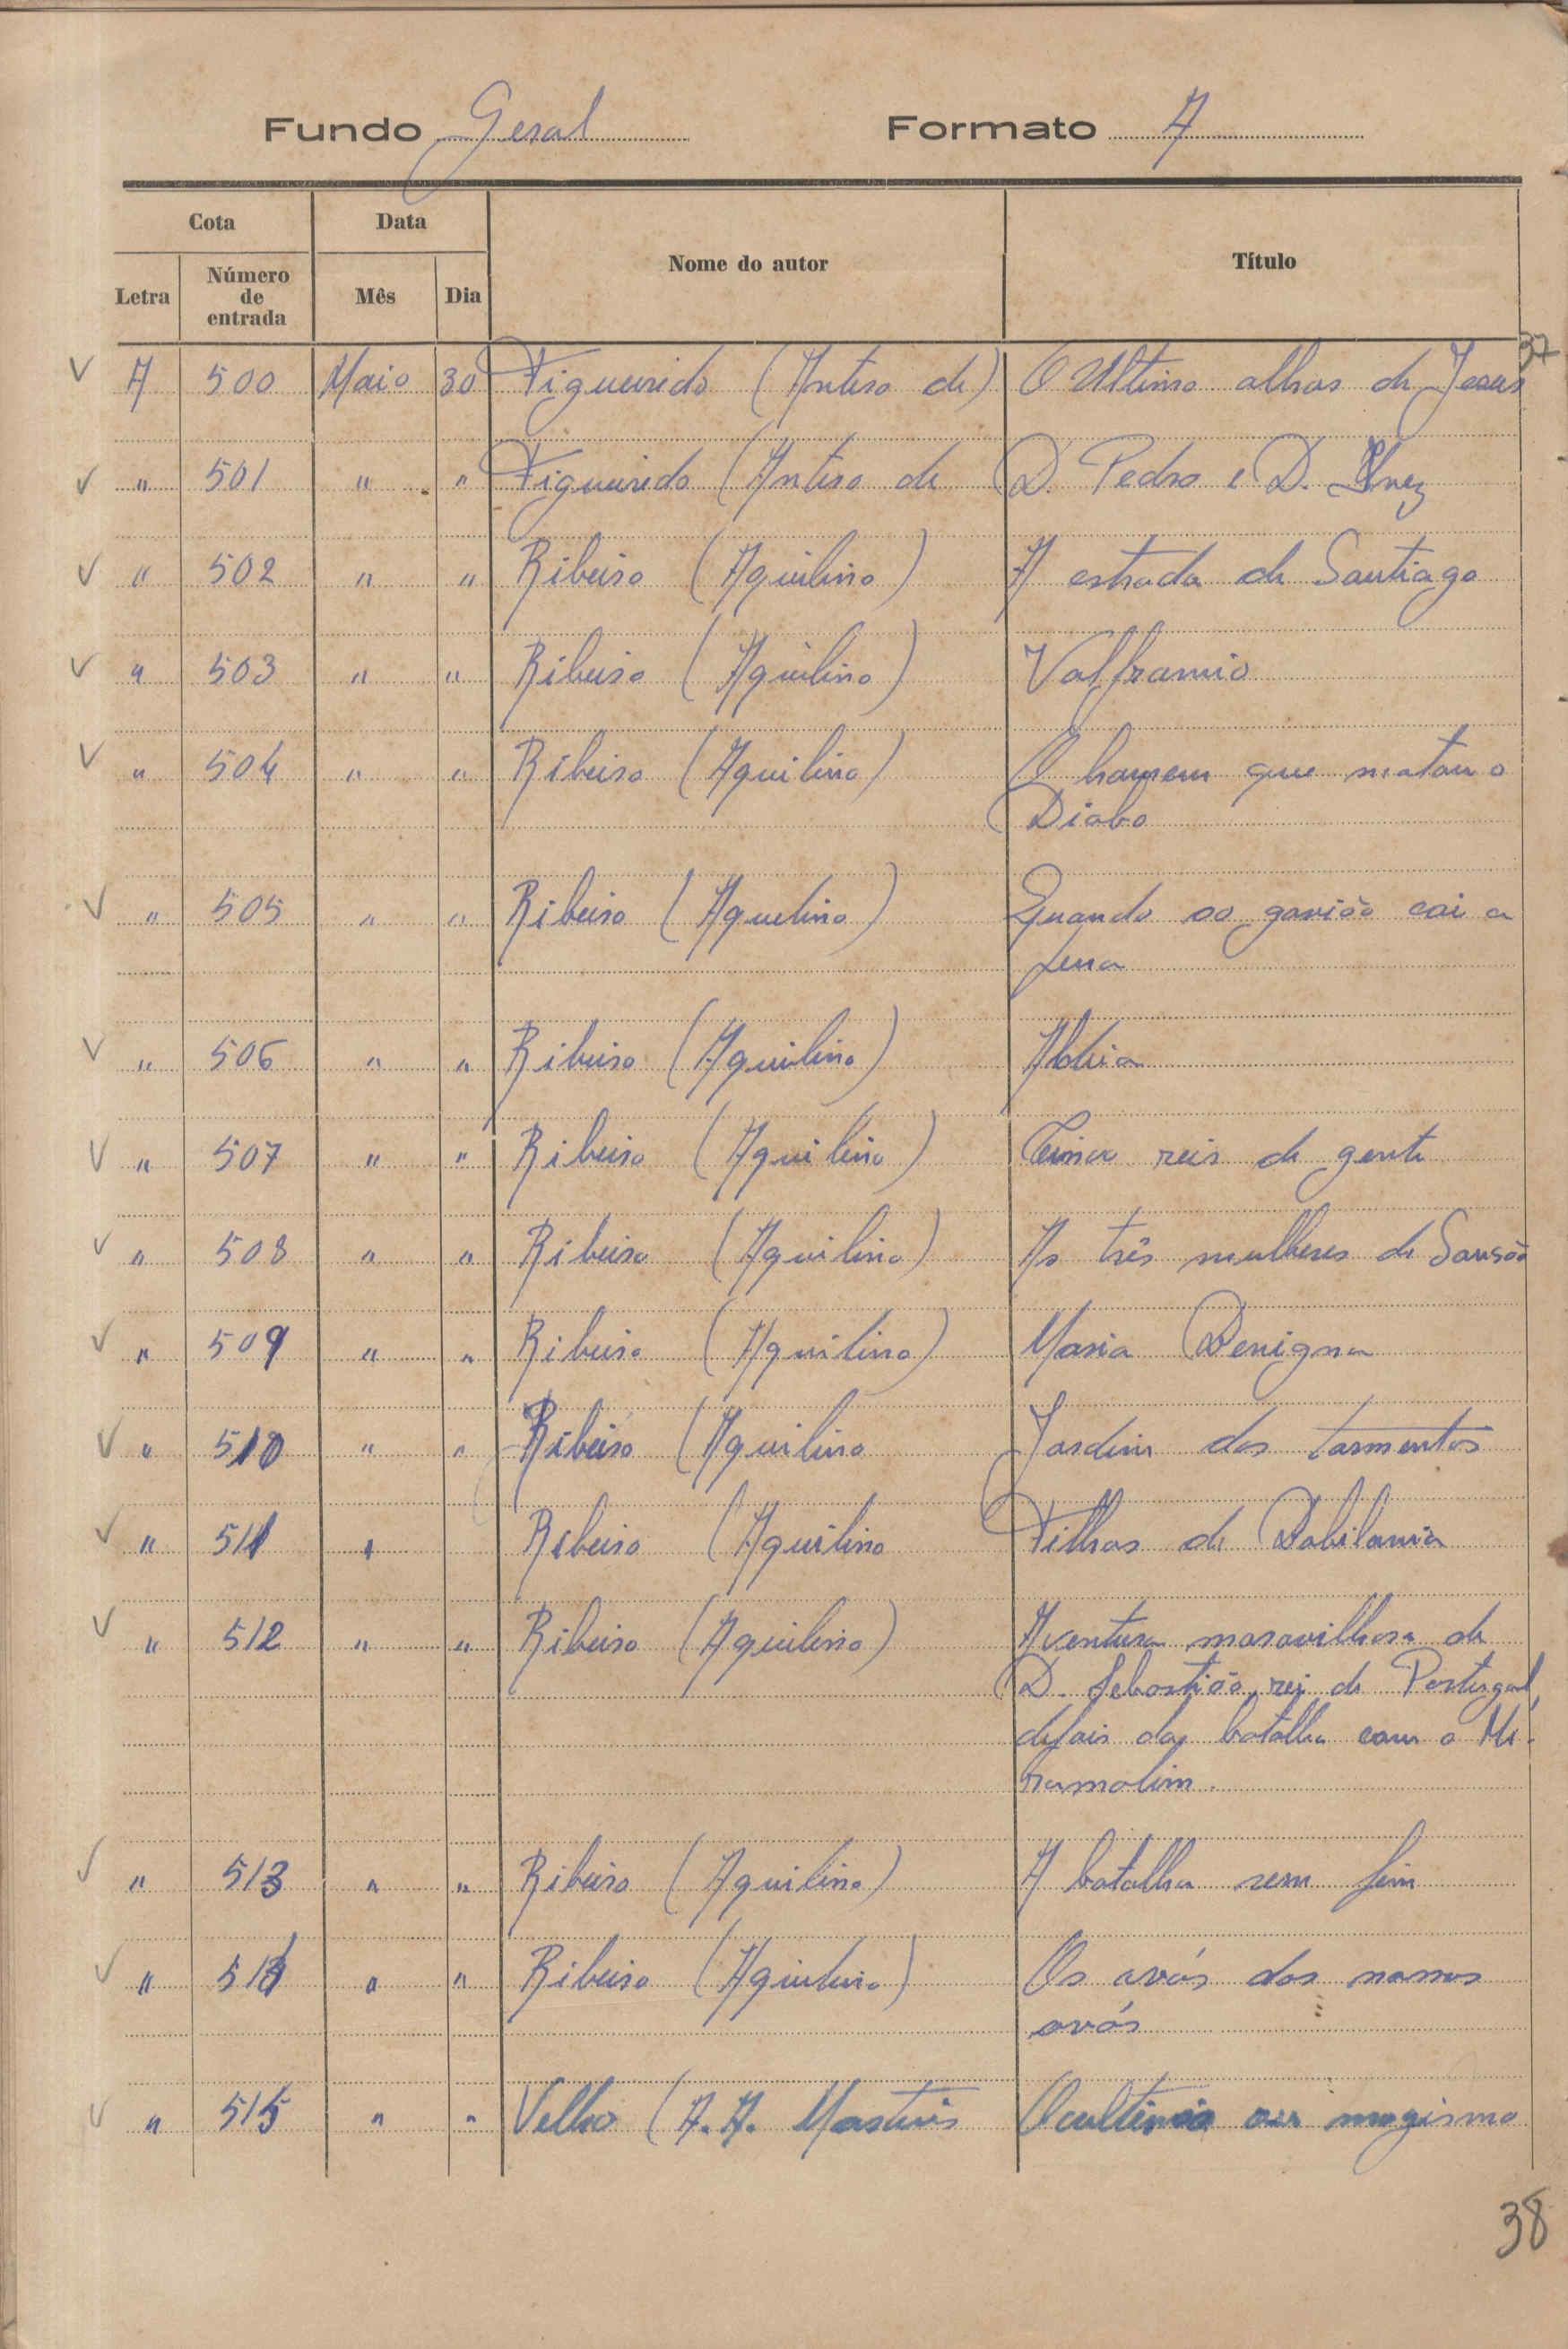 Fundo Geral Formato A
Cota Data Nome do autor Título
Letra Número de entrada Mês Dia
37
V A 500 Maio 30 Figueiredo (Antero de) O Ultimo olhar de Jesus
V " 501 " " Figueiredo (Antero de D. Pedro e D. Inez
V " 502 " " Ribeiro (Aquilino) A estrada de Santiago
V " 503 " " Ribeiro (Aquilino) Volframio
V " 504 " " Ribeiro (Aquilino) O homem que matou o
Diabo
V " 505 " " Ribeiro (Aquilino) Quando ao gavião cai a
pena
V " 506 " " Ribeiro (Aquilino) Aldeia
V " 507 " " Ribeiro (Aquilino) Cinco reis de gente
V " 508 " " Ribeiro (Aquilino) As três mulheres de Sansão
V " 509 " " Ribeiro (Aquilino) Maria Benigna
V " 510 " " Ribeiro (Aquilino Jardim das tormentas
V " 511 " Ribeiro (Aquilino Filhas de Babilonia
V " 512 " " Ribeiro (Aquilino) Aventura maravilhosa de
D. Sebastião, rei de Portugal,
depois da batalha com o Mi-
ramolim.
V " 513 " " Ribeiro (Aquilino) A batalha sem fim
V " 514 " " Ribeiro (Aquilino) Os avós dos nossos
avós
V " 515 " " Velho (A. A. Martins Ocultismo magismo
38